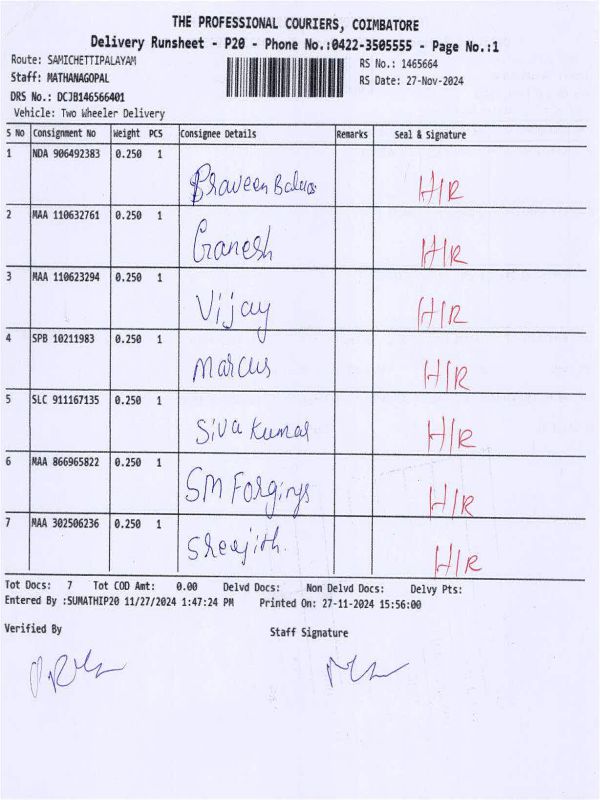 THE PROFESSIONAL COURIERS, COIMBATORE
Delivery Runsheet - P20 - Phone No.:0422-3505555 - Page No.:1
Route: SAMICHETTIPALAYAM
RS No.: 1465664
Staff: MATHANAGOPAL
RS Date: 27-Nov-2024
DRS No.: DCJB146566401
Vehicle: Two Wheeler Delivery
S No Consignment No Weight PCS Consignee Details Remarks Seal & Signature
1 NDA 906492383 0.250 1
Praveen H/R
2 MAA 110632761 0.250 1
Ganesh H/R
3 MAA 110623294 0.250 1
Vijay H/R
4 SPB 10211983 0.250 1
Marcus H/R
5 SLC 911167135 0.250 1
Siva Kumar H/R
6 MAA 866965822 0.250 1
SM Forgings H/R
7 MAA 302506236 0.250 1
Sreejith. H/R
Tot Docs: 7 Tot COD Amt: 0.00 Delvd Docs: Non Delvd Docs: Delvy Pts:
Entered By :SUMATHIP20 11/27/2024 1:47:24 PM Printed On: 27-11-2024 15:56:00
Verified By Staff Signature